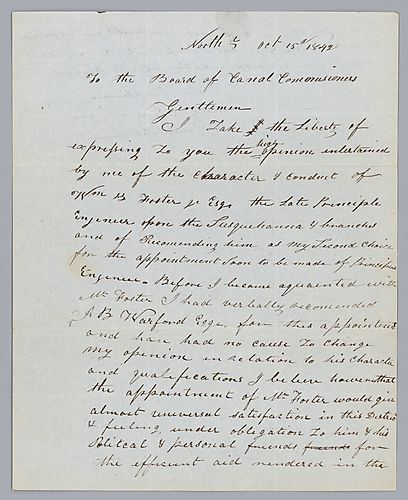 North'd Oct 15th 1842
To the Board of Canal Commissioners
Gentlemen
I Take the Liberty of
expressing to you the high opinion entertained
by me of the Character & conduct of
Wm B Foster jr Esq. the Late Principle
Engineer upon the Susquehanna & branches
and of Recomending him as my Second Choice
for the appointment soon to be made of Principal
Engineer. Before I became aquainted with
Mr Foster I had verbally recomended
A B Warford Esqr. for this appointment
and have had no cause to change
my opinion in relation to his Character
and qualifications I believe however that
the appointment of Mr Foster would give
almost universal satisfaction in this District
& feeling under obligation to him & his
Political & personal friends friends for
the efficient aid rendered in the